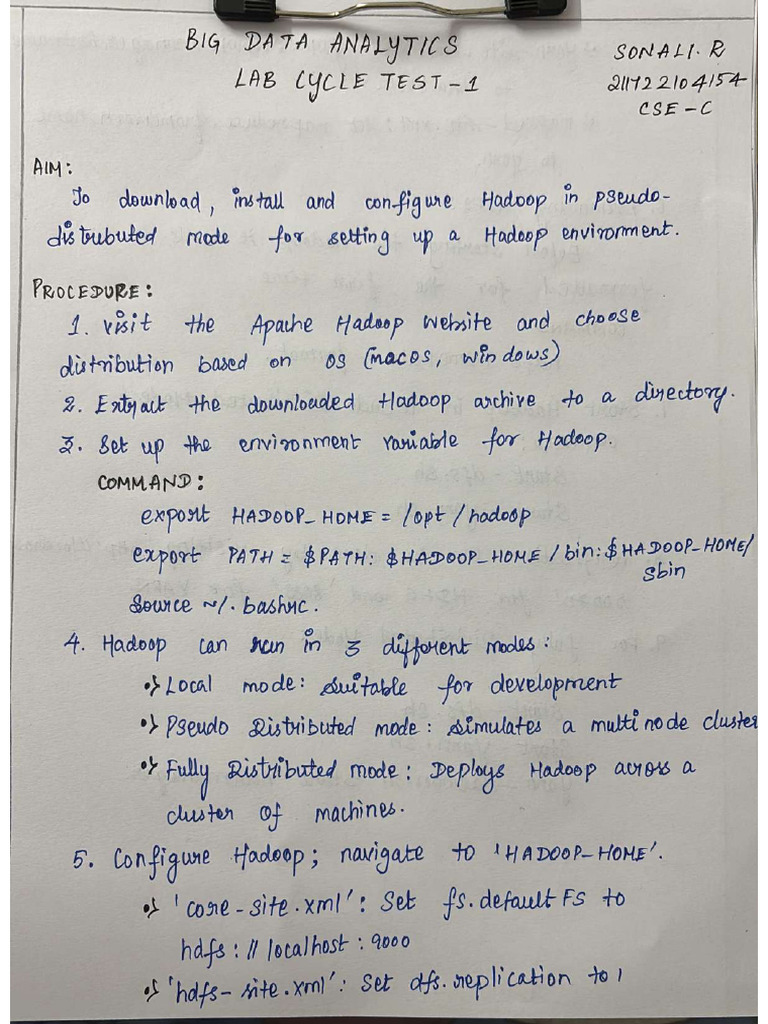 BIG DATA ANALYTICS
LAB CYCLE TEST-1
SONALI.R
211722104154
CSE-C
AIM:
To download, install and configure Hadoop in pseudo-
distributed mode for setting up a Hadoop environment.
PROCEDURE:
1. visit the Apache Hadoop website and choose
distribution based on OS (macos, windows)
2. Extract the downloaded Hadoop archive to a directory.
3. Set up the environment variable for Hadoop.
COMMAND:
export HADOOP_HOME = /opt/hadoop
export PATH = $PATH: $HADOOP_HOME /bin: $HADOOP_HOME/
sbin
source ~/. bashrc.
4. Hadoop can run in 3 different modes:
•> Local mode: suitable for development
•> Pseudo Distributed mode: simulates a multinode cluster
•> Fully Distributed mode: Deploys Hadoop across a
cluster of machines.
5. Configure Hadoop; navigate to 'HADOOP-HOME'.
•> 'core-site.xml': Set fs.defaultFS to
hdfs://localhost:9000
•> 'hdfs-site.xml': Set dfs.replication to 1